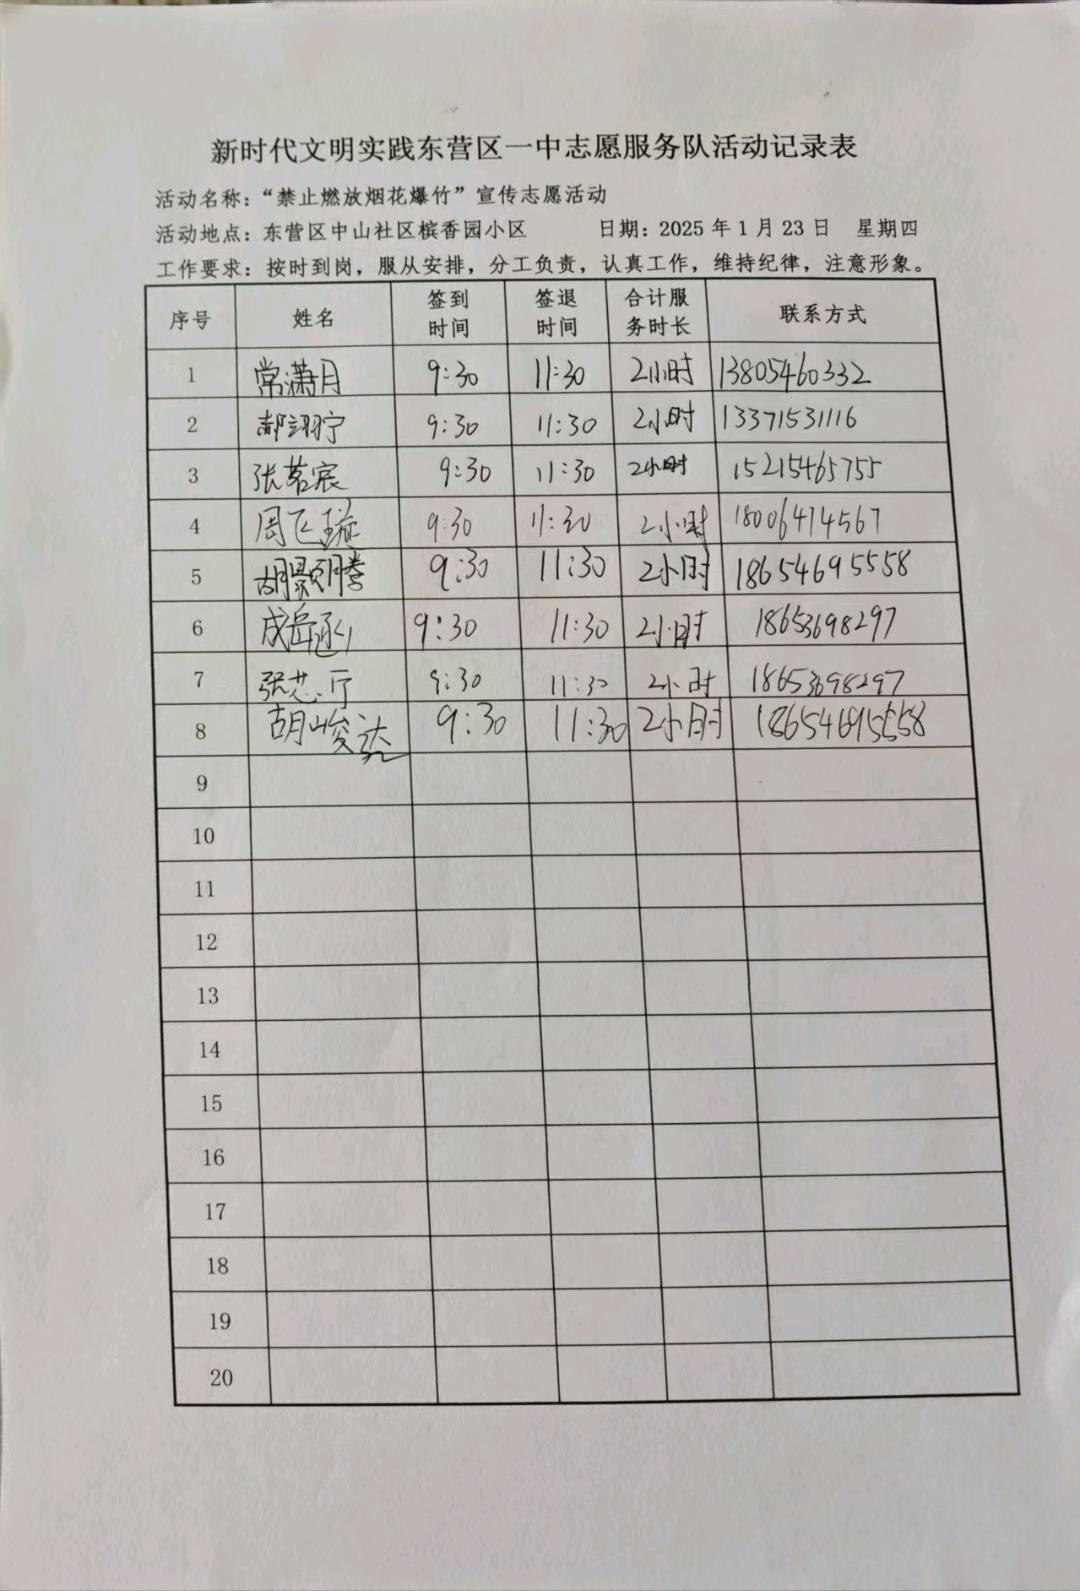 新时代文明实践东营区一中志愿服务队活动记录表
活动名称：“禁止燃放烟花爆竹”宣传志愿活动
活动地点：东营区中山社区槟香园小区 日期：2025 年 1 月 23 日 星期四
工作要求：按时到岗，服从安排，分工负责，认真工作，维持纪律，注意形象。
序号 姓名 签到时间 签退时间 合计服务时长 联系方式
1 常潇月 9:30 11:30 2小时 13805460332
2 郝翊宁 9:30 11:30 2小时 13371531116
3 张茗宸 9:30 11:30 2小时 15215465755
4 周飞璇 9:30 11:30 2小时 18006414567
5 胡颢腾 9:30 11:30 2小时 18654695558
6 成岳 9:30 11:30 2小时 18653698297
7 张芯 9:30 11:30 2小时 18653698297
8 胡峻达 9:30 11:30 2小时 18654695558
9
10
11
12
13
14
15
16
17
18
19
20